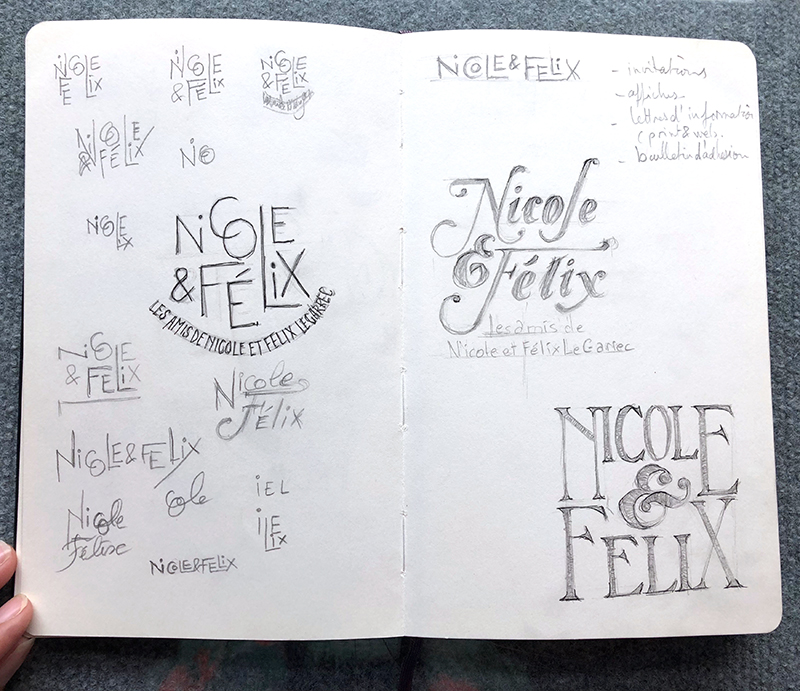 NiCOLE
FELiX
NiCOLE
& FÉLiX
NiCOLE
& FÉLiX
NiCOLE
& FÉLiX
NiO
NiCOLE
iX
NiCOLE
& FÉLiX
LES AMIS DE NICOLE ET FELIX LEGARREC
NiCOLE
& FÉLiX
Nicole
Félix
NiCOLE & FELiX
Nicole
Félix
cole
iEL
iLE
iX
NiCOLE&FELiX
NiCOLE & FELiX
- invitations
- affiches
- lettres d'information
(print & web.
- bulletin d'adhésion
Nicole
& Félix
Les amis de
Nicole et Félix Le Garrec
NICOLE
&
FELIX